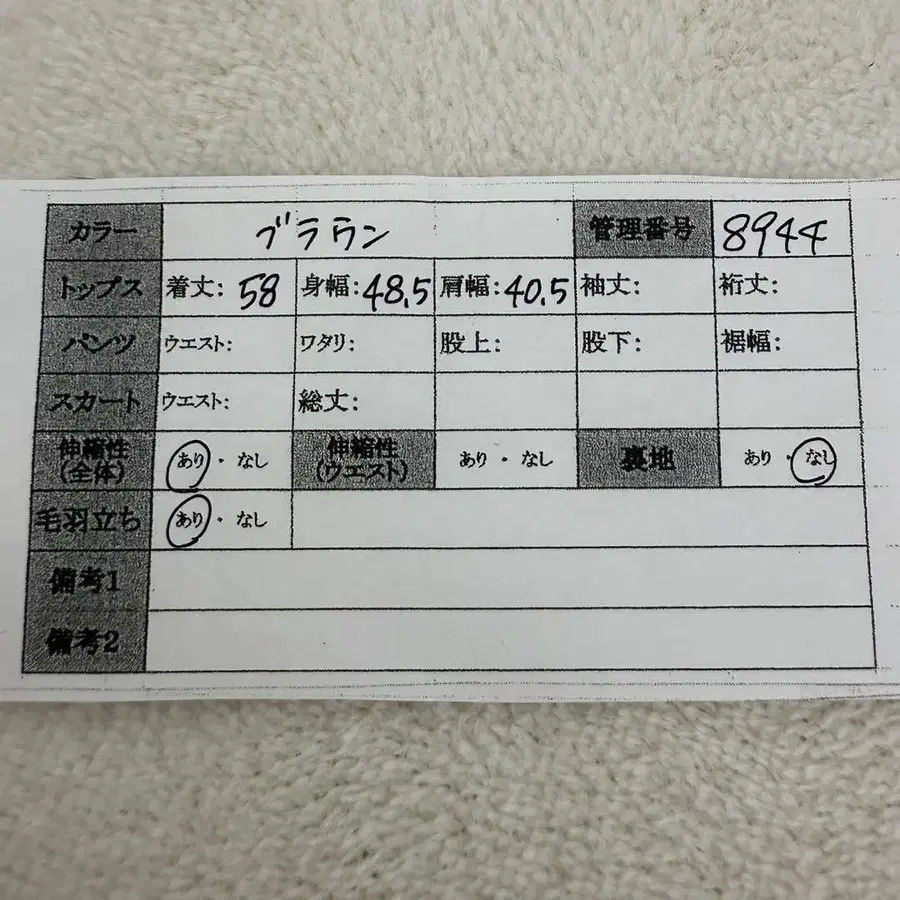 カラー ブラウン 管理番号 8944
トップス 着丈: 58 身幅: 48.5 肩幅: 40.5 袖丈: 裄丈:
パンツ ウエスト: ワタリ: 股上: 股下: 裾幅:
スカート ウエスト: 総丈:
伸縮性(全体) あり・なし 伸縮性(ウエスト) あり・なし 裏地 あり・なし
毛羽立ち あり・なし
備考1
備考2